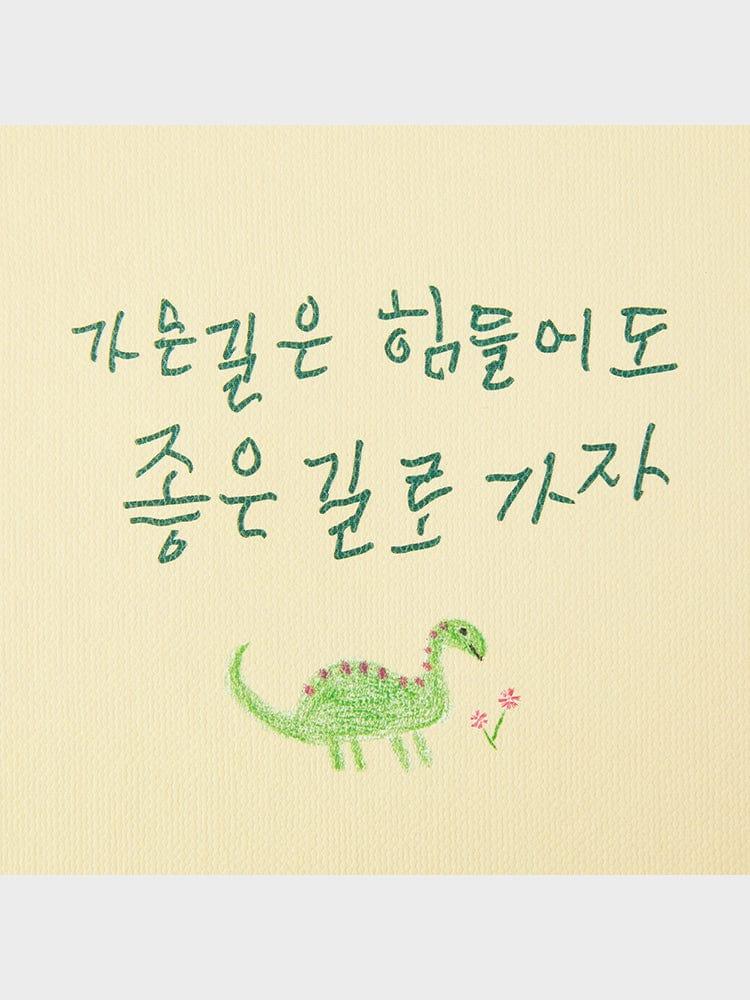 가는길은 힘들어도
좋은 길로 가자